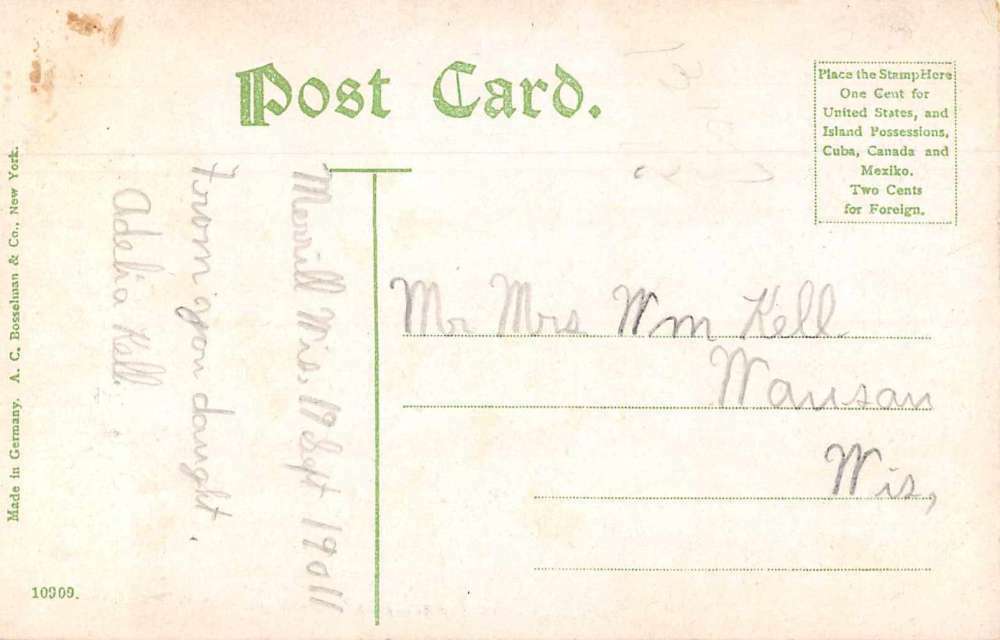 Post Card.
Place the Stamp Here
One Cent for
United States, and
Island Possessions,
Cuba, Canada and
Mexiko.
Two Cents
for Foreign.
Made in Germany. A. C. Bosselman & Co., New York.
Merrill Wis, 19 Sept 19011
From your daught.
Adelia Kell.
Mr Mrs Wm Kell
Wausau
Wis,
10909.